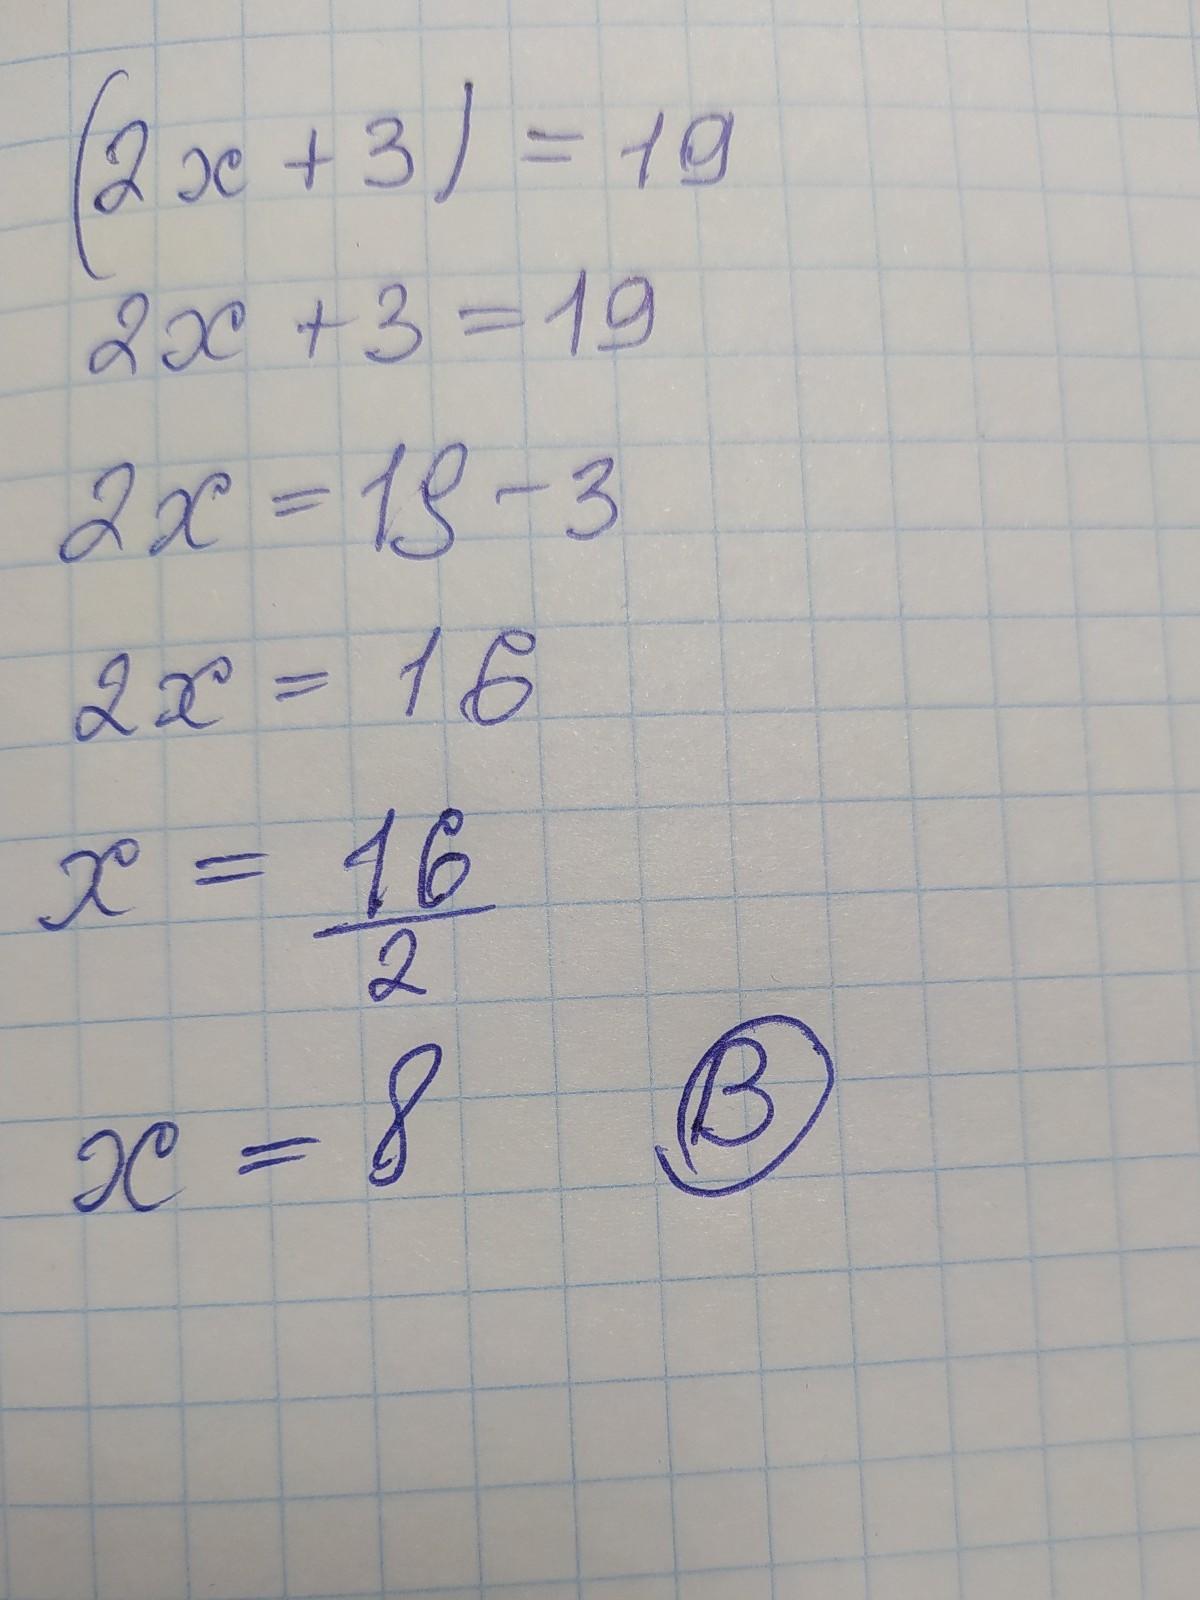 (2x + 3) = 19
2x + 3 = 19
2x = 19 - 3
2x = 16
x = 16/2
x = 8 B